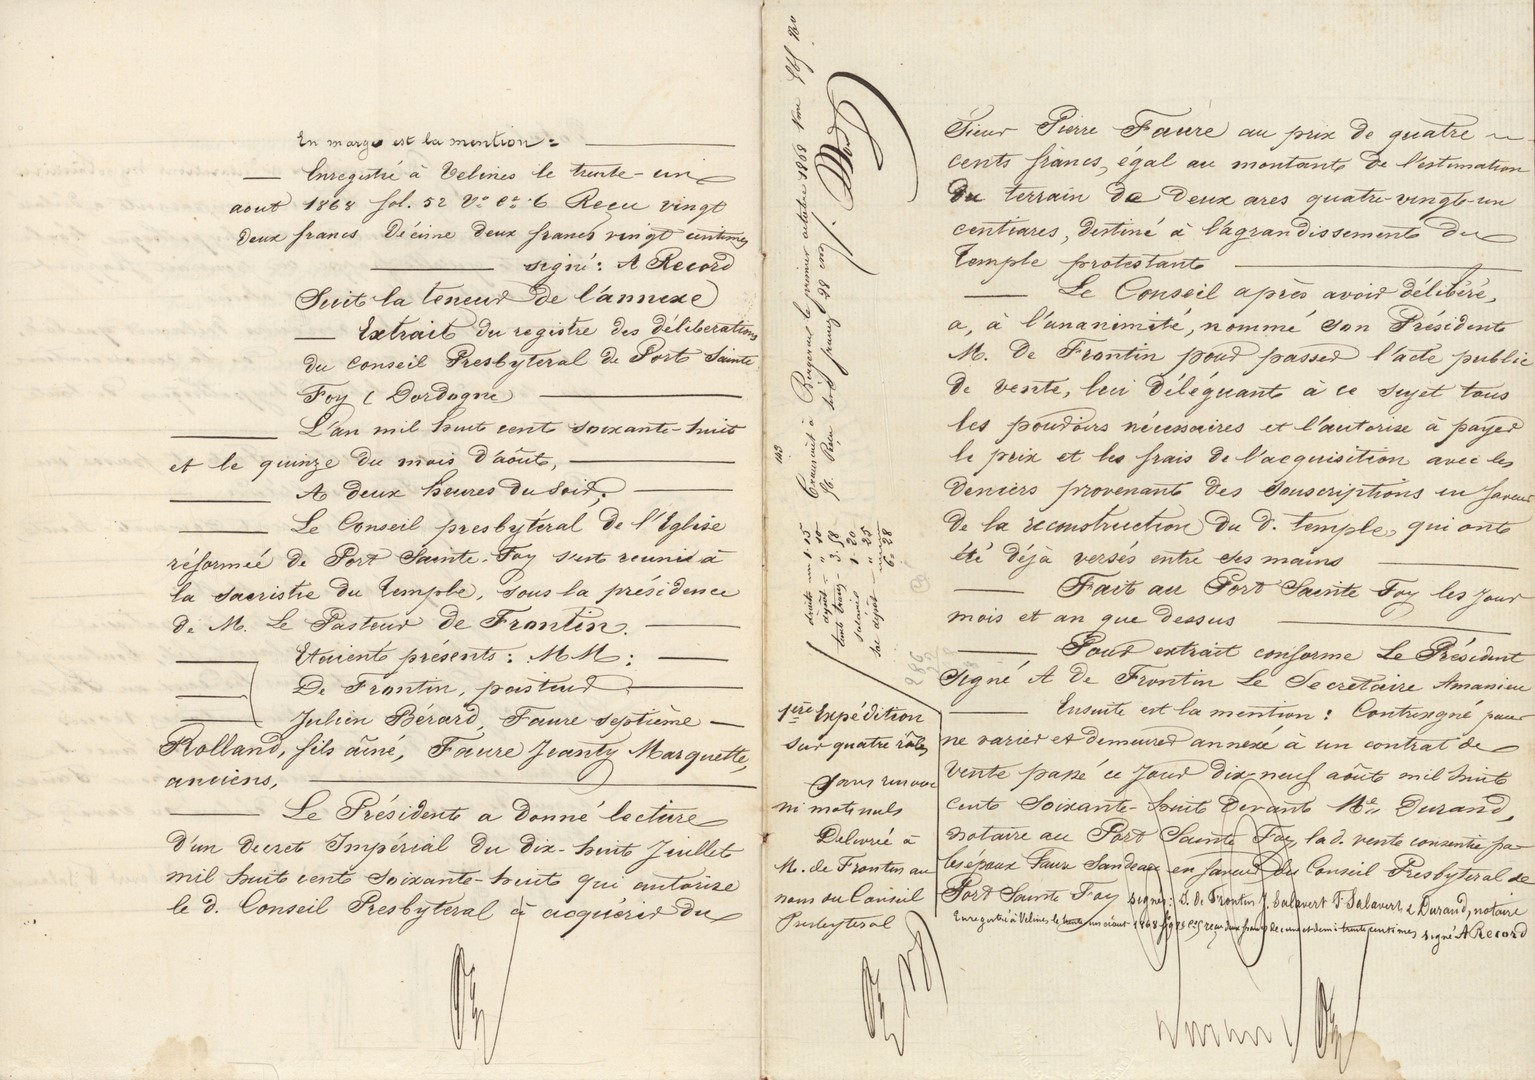 En marge est la mention =
Enregistré à Velines le trente-un
aout 1868 fol. 52 Vo Ce 6 Reçu vingt
deux francs Décime deux francs vingt centimes
signé: A Record
Suit la teneur de l'annexe
Extrait du registre des déliberations
du Conseil Presbyteral de Port Sainte
Foy (Dordogne
L'an mil huit cent soixante-huit
et le quinze du mois d'août,
A deux heures du Soir,
Le Conseil presbytéral de l'Eglise
réformée de Port Sainte-Foy s'est reuni à
la sacristie du temple, sous la présidence
de M. Le Pasteur de Frontin.
Etaient présents: MM:
De Frontin, pasteur
Julien Bérard, Faure septième
Rolland, fils aîné, Faure Jeanty Marquette,
anciens,
Le Président a donné lecture
d'un decret Impérial du dix-huit Juillet
mil huit cent soixante-huit qui autorise
le d. Conseil Presbyteral à acquérir du
Sieur Pierre Faure au prix de quatre
cents francs, égal au montant de l'estimation
du terrain de deux ares quatre-vingt-un
centiares, destiné à l'agrandissement du
Temple protestant
Le Conseil après avoir délibéré,
a, à l'unanimité, nommé son Président
M. De Frontin pour passer l'acte public
de vente, lui déléguant à ce sujet tous
les pouvoirs nécessaires et l'autorise à payer
le prix et les frais de l'acquisition avec les
deniers provenant des Souscriptions en faveur
de la reconstruction du d. temple, qui ont
été déjà versés entre ses mains
Fait au Port Sainte Foy les jour
mois et an que dessus
Pour extrait conforme Le Président
Signé A de Frontin Le Secretaire Amanieu
Ensuite est la mention: Contresigné pour
ne varier et demeurer annexé à un contrat de
vente passé ce Jour dix-neuf août mil huit
cent Soixante-huit devant Me Durand,
notaire au Port Sainte Foy, la d. vente consentie par
les époux Faure Sandeaux en faveur du Conseil Presbyteral de
Port Sainte Foy signés: A. de Frontin J. Salavert F. Salavert & Durand, notaire
Enregistré à Velines le trente un août 1868 reçu deux francs decime et demi trente centimes signé A Record
1ère Expédition
sur quatre rôles
Sans renvoi
ni mot nuls
Delivrée à
M. de Frontin au
nom du Conseil
Presbyteral
Transcrit à Bergerac le premier octobre 1868 Vol 565 No
50. Reçu six francs 28 cent
143
droits 1.15
" 10
3.58
salaire 1.20
sur dépôt " 25
6.28
286